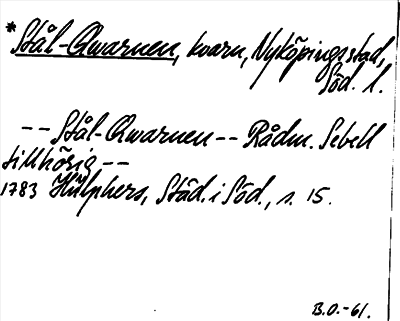 *Stål-Qwarnen, kvarn, Nyköpings stad,
Söd. l.
-- Stål-Qwarnen -- Rådm. Sebell
tillhörig --
1783 Hülphers, Städ. i Söd., s. 15.
B.O.-61.